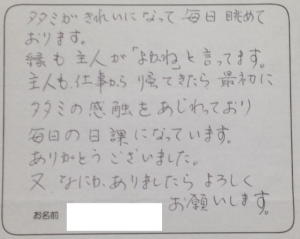 タタミがきれいになって毎日眺めて
おります。
縁も主人が「よかね」と言ってます。
主人も、仕事から帰てきたら最初に
タタミの感触をあじわっており
毎日の日課になっています。
ありがとうございました。
又なにか、ありましたらよろしく
お願いします。
お名前